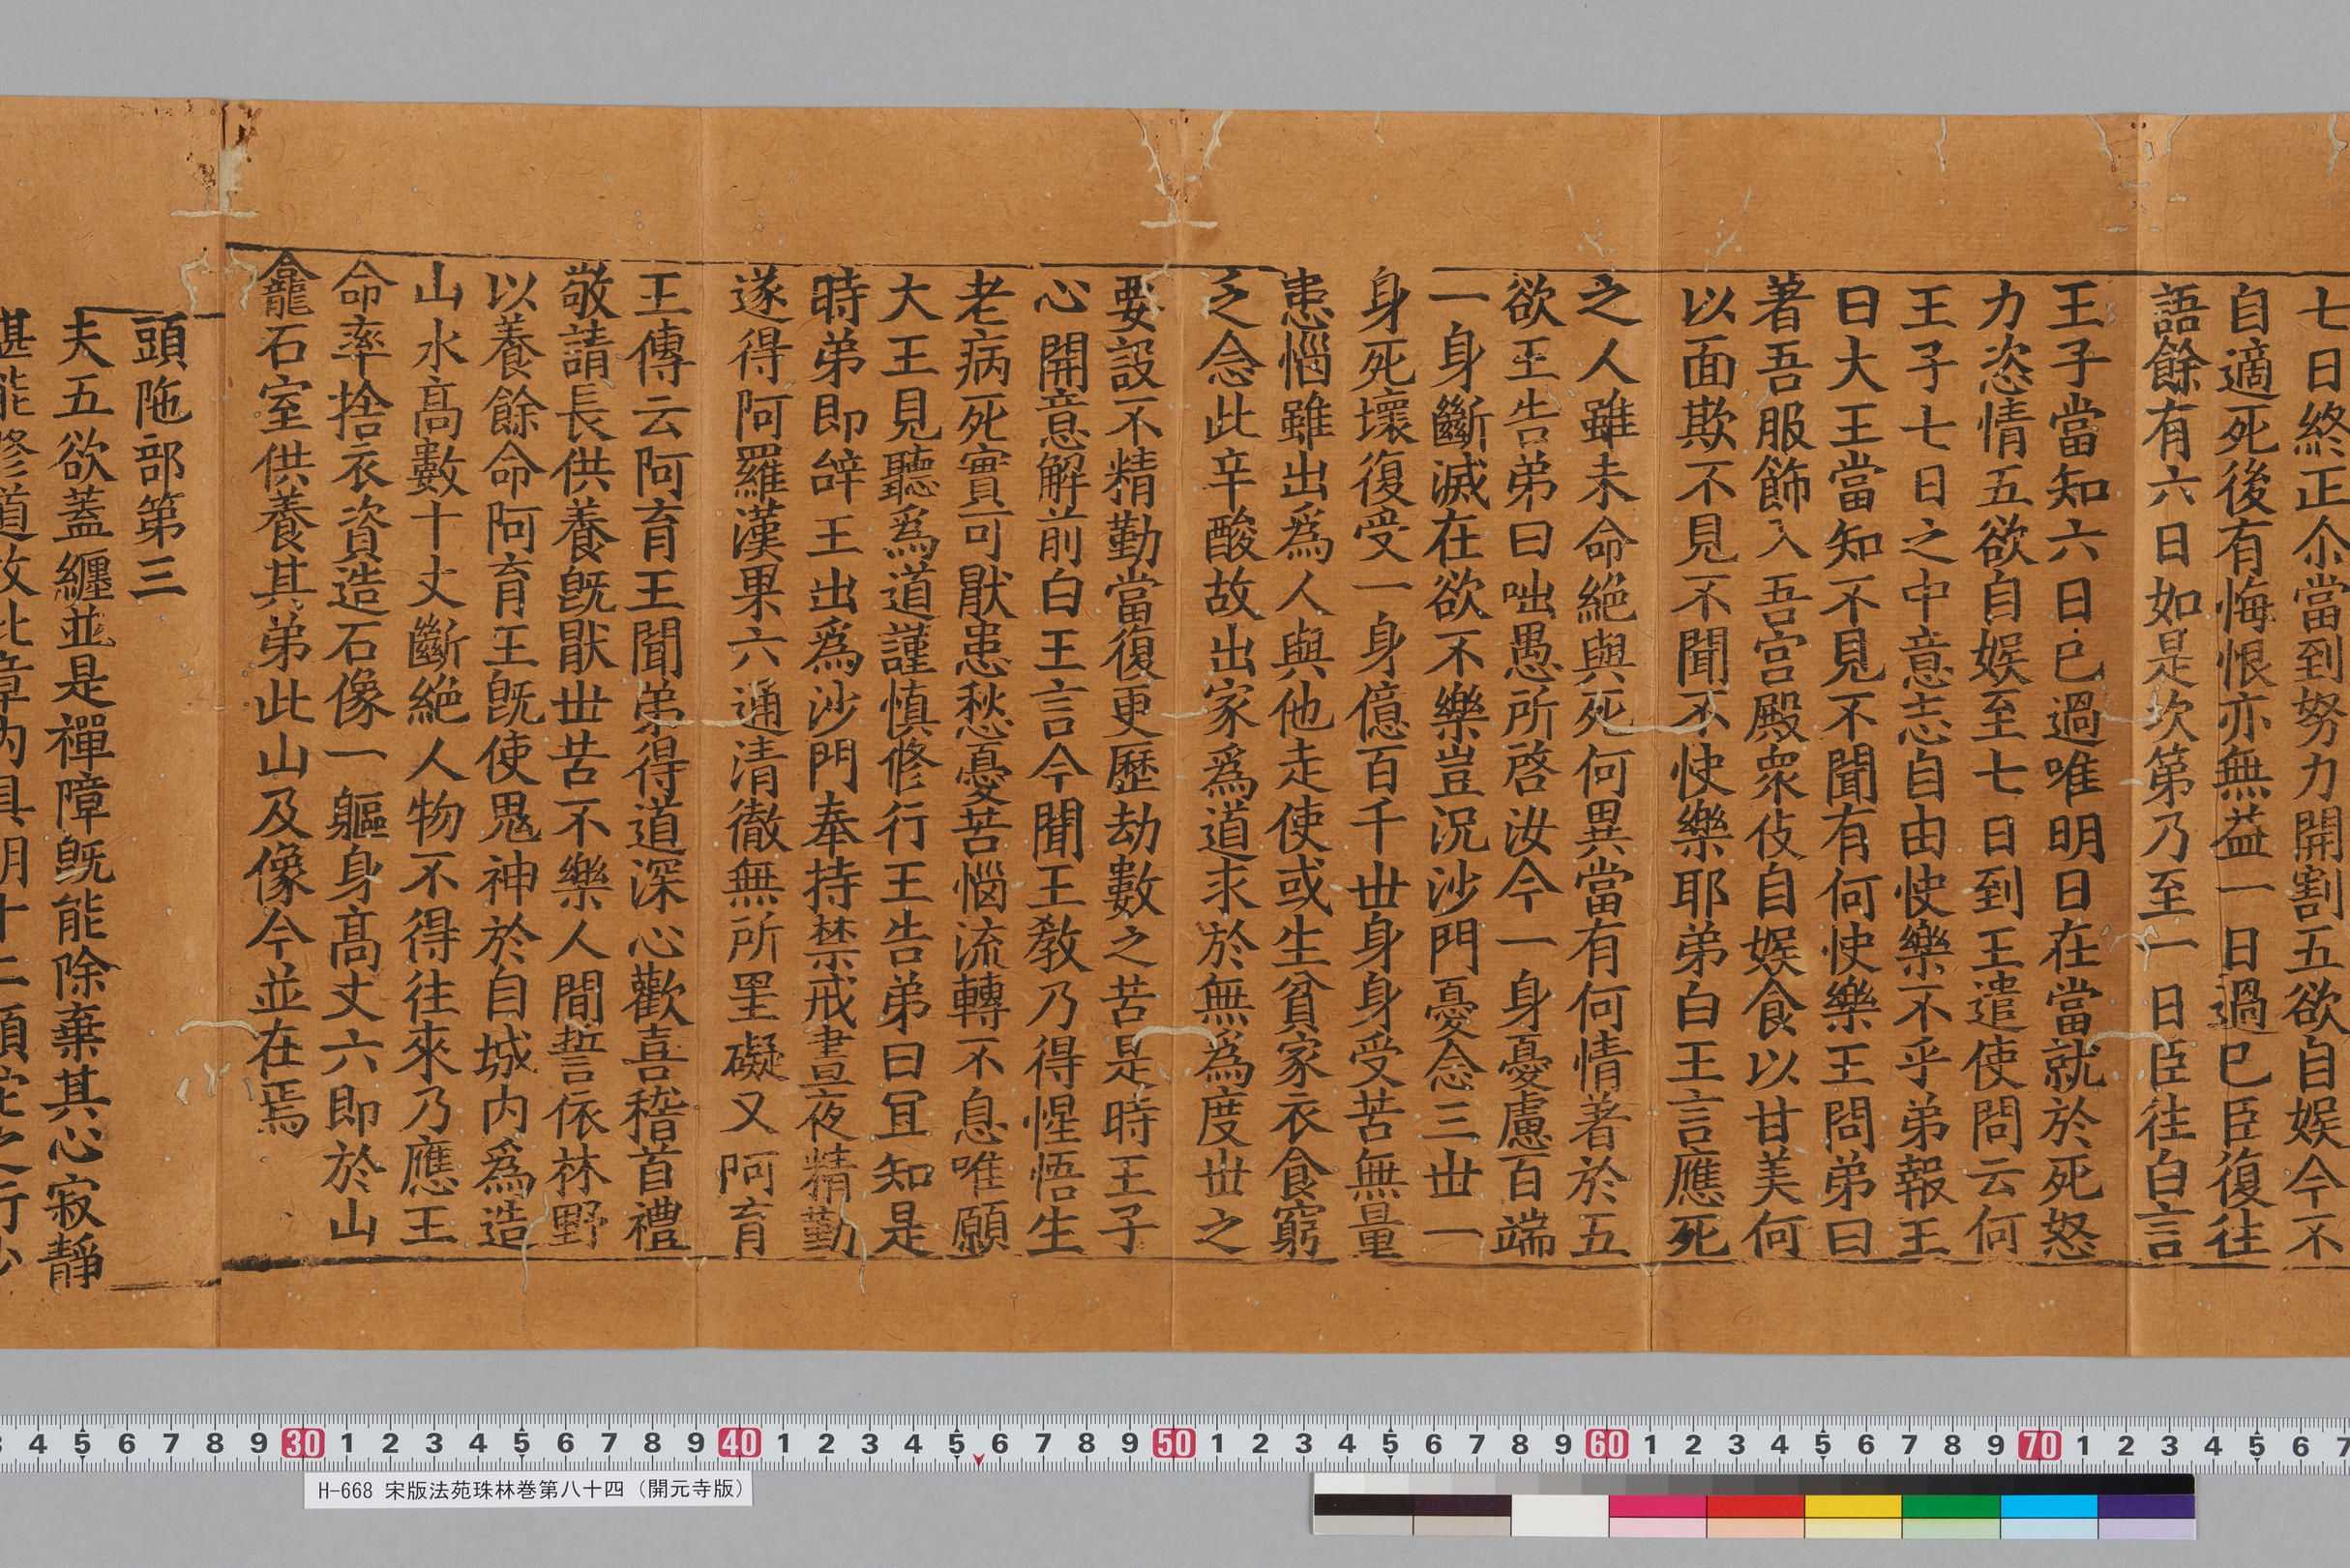 七日終正尒當到努力開割五欲自娯今不
自適死後有悔恨亦無益一日過已臣復往
語餘有六日如是次第乃至一日臣往白言
王子當知六日已過唯明日在當就於死怒
力恣情五欲自娯至七日到王遣使問云何
王子七日之中意志自由快樂不乎弟報王
曰大王當知不見不聞有何快樂王問弟曰
著吾服飾入吾宫殿衆伎自娯食以甘美何
以面欺不見不聞不快樂耶弟白王言應死
之人雖未命絶與死何異當有何情著於五
欲王告弟曰咄愚所啓汝今一身憂慮百端
一身斷滅在欲不樂豈况沙門憂念三丗一
身死壞復受一身億百千丗身身受苦無量
患惱雖出爲人與他走使或生貧家衣食窮
乏念此辛酸故出家爲道求於無爲度丗之
要設不精勤當復更歷劫數之苦是時王子
心開意解前白王言今聞王教乃得惺悟生
老病死實可猒患愁憂苦惱流轉不息唯願
大王見聽爲道謹慎修行王告弟曰冝知是
時弟即辝王出爲沙門奉持禁戒晝夜精勤
遂得阿羅漢果六通清徹無所罣礙又阿育
王傳云阿育王聞弟得道深心歡喜稽首禮
敬請長供養旣猒丗苦不樂人間誓依林野
以養餘命阿育王旣使鬼神於自城内爲造
山水髙數十丈斷絶人物不得往來乃應王
命率捨衣資造石像一軀身髙丈六即於山
龕石室供養其弟此山及像今並在焉
頭陁部第三
夫五欲蓋纏並是禪障旣能除棄其心寂靜
堪能修道故此章内具明十二頭陁之行少
H-668 宋版法苑珠林巻第八十四（開元寺版）
3 4 5 6 7 8 9 30 1 2 3 4 5 6 7 8 9 40 1 2 3 4 5 6 7 8 9 50 1 2 3 4 5 6 7 8 9 60 1 2 3 4 5 6 7 8 9 70 1 2 3 4 5 6 7